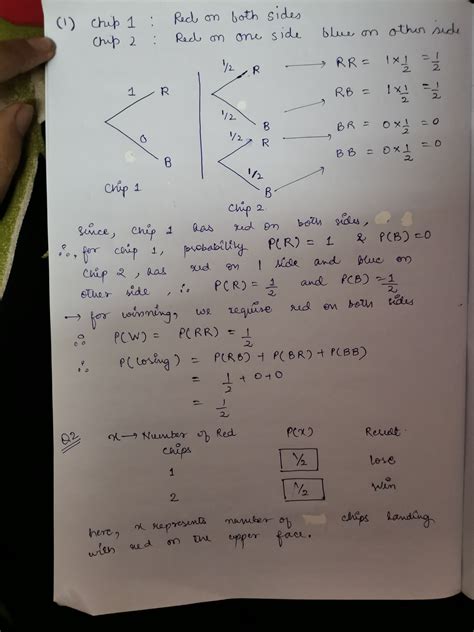 (1) Chip 1 : Red on both sides
Chip 2 : Red on one side blue on other side
1/2 R → RR = 1 × 1/2 = 1/2
1 R
1/2 B → RB = 1 × 1/2 = 1/2
0 B
1/2 R → BR = 0 × 1/2 = 0
1/2 B → BB = 0 × 1/2 = 0
Chip 1
Chip 2
Since, chip 1 has red on both sides,
∴, for chip 1, probability P(R) = 1 & P(B) = 0
Chip 2, has red on 1 side and blue on
other side, ∴ P(R) = 1/2 and P(B) = 1/2
→ for winning, we require red on both sides
∴ P(W) = P(RR) = 1/2
∴ P(losing) = P(RB) + P(BR) + P(BB)
= 1/2 + 0 + 0
= 1/2
Q2 x → Number of Red P(x) Result
chips
1 1/2 lose
2 1/2 win
here, x represents number of chips landing
with red on the upper face.